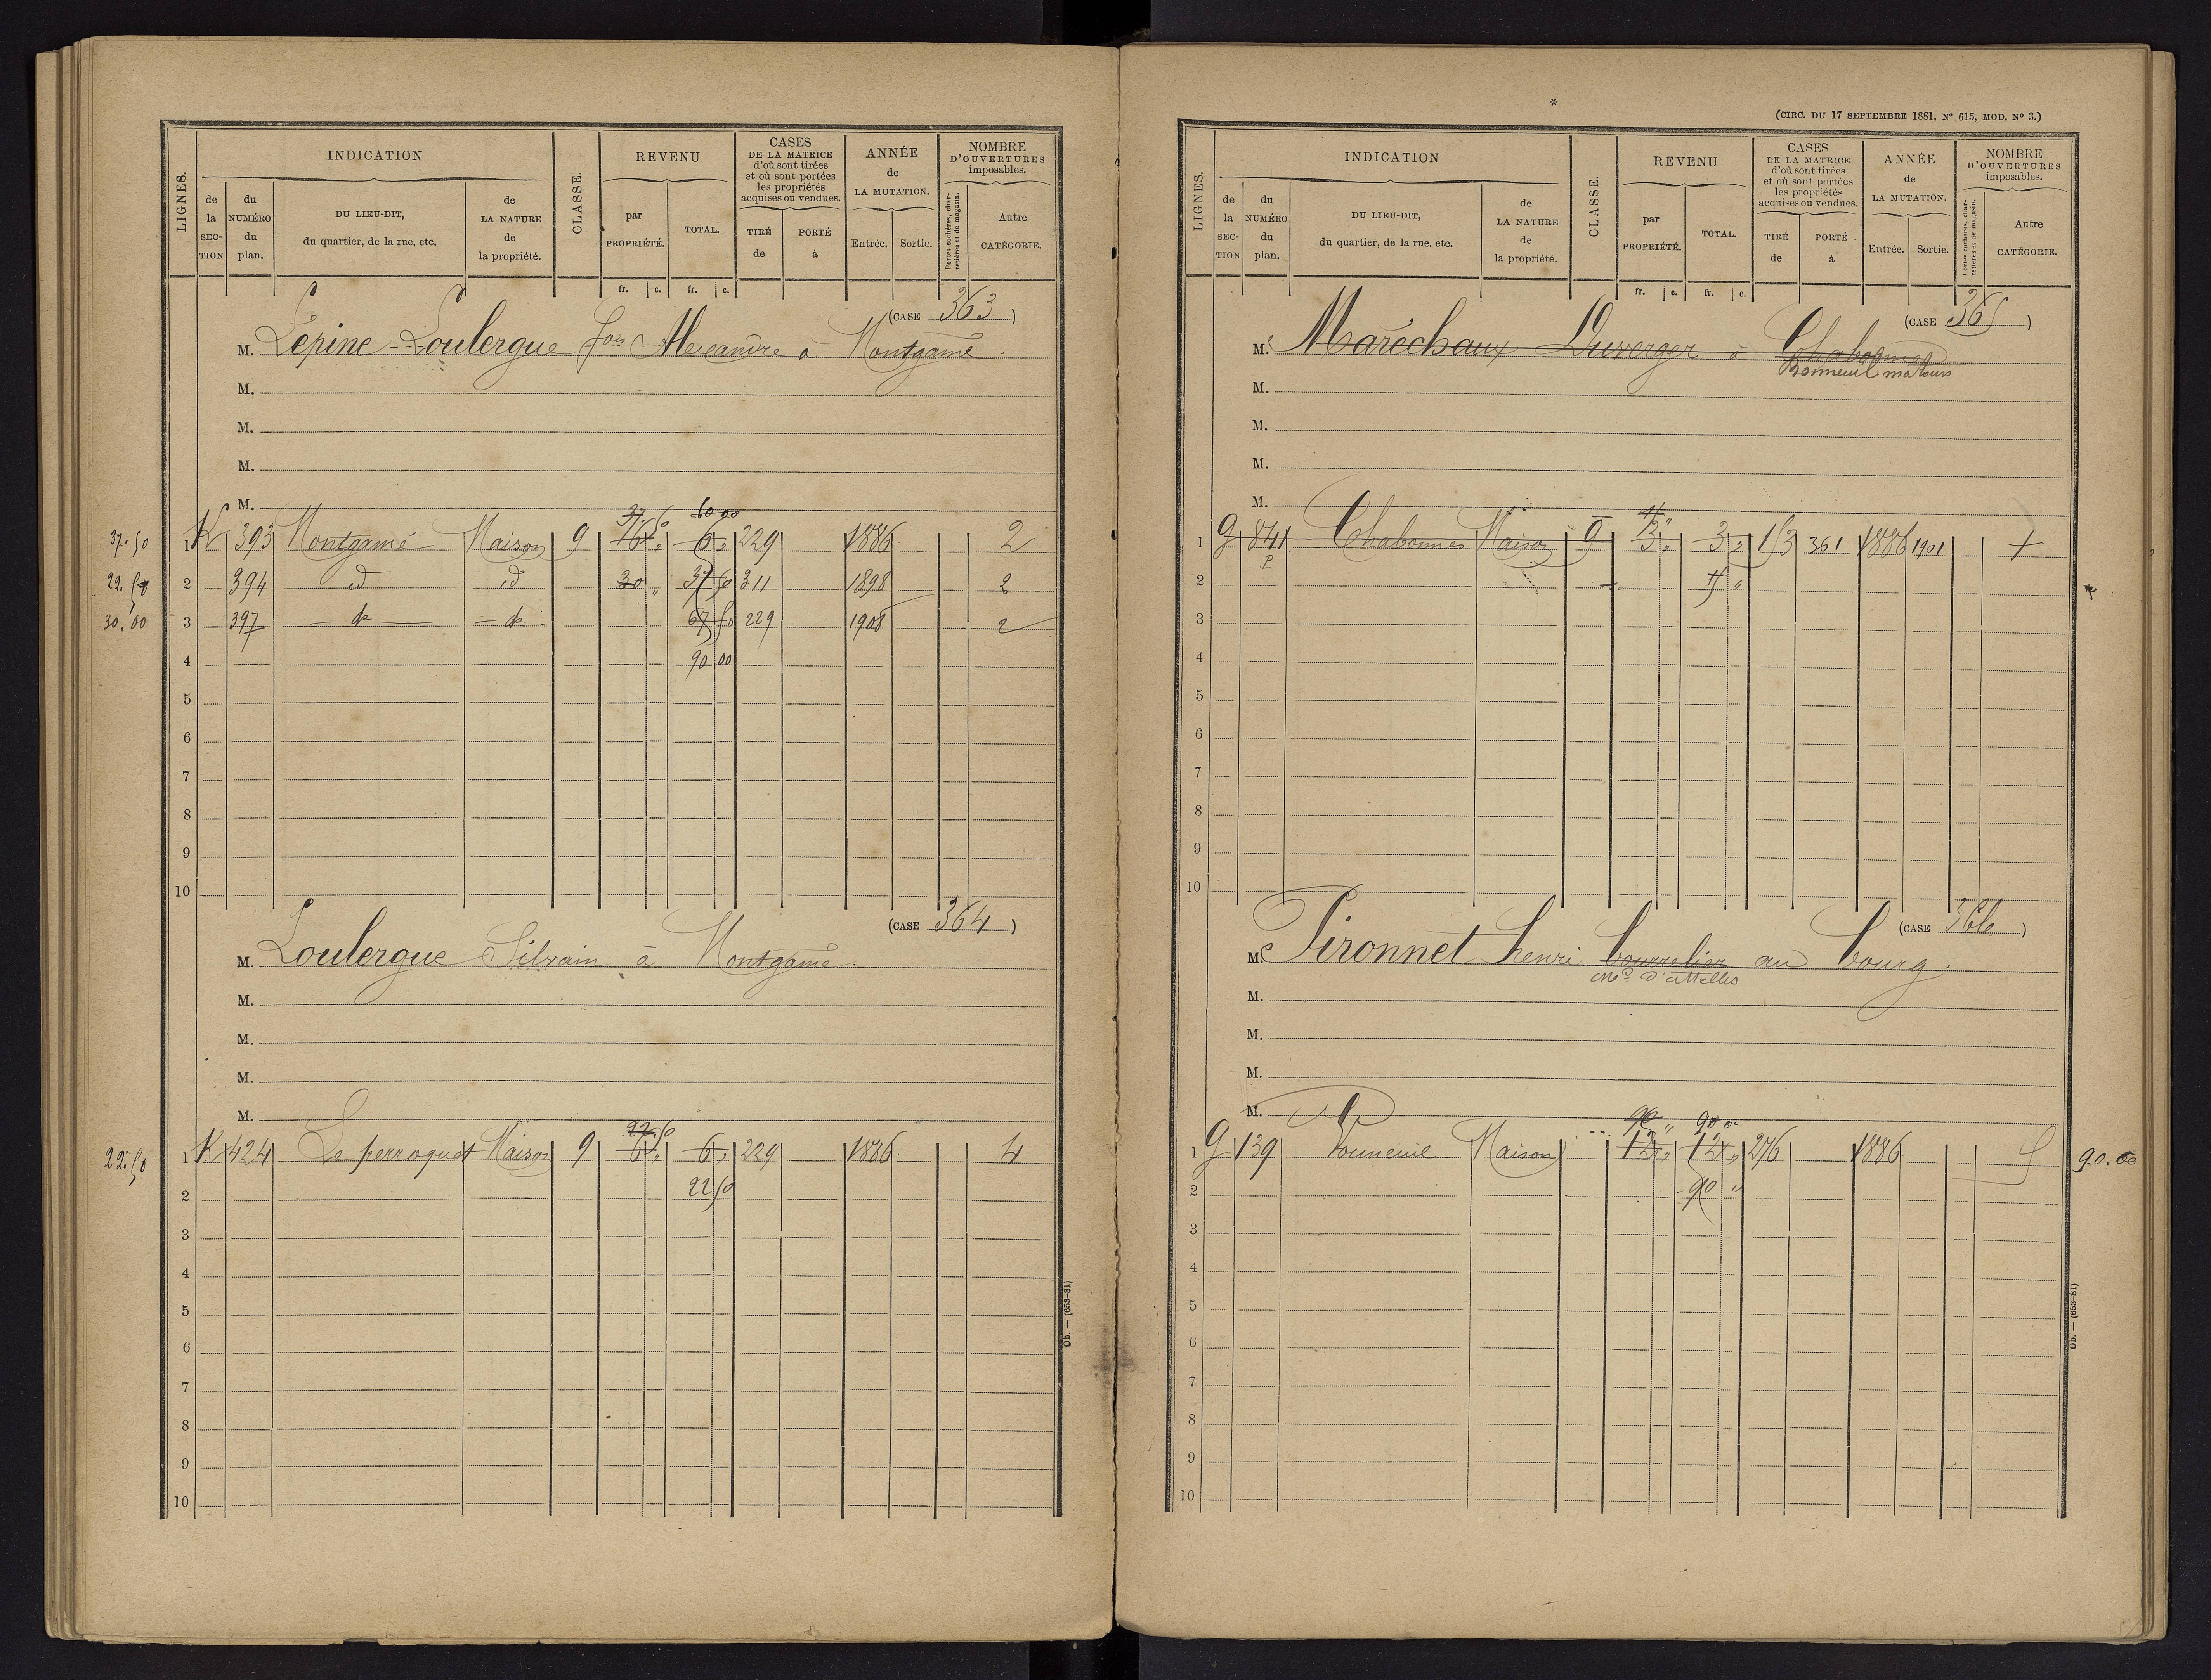 LIGNES. INDICATION CLASSE. REVENU CASES DE LA MATRICE d'où sont tirées et où sont portées les propriétés acquises ou vendues. ANNÉE de LA MUTATION. NOMBRE D'OUVERTURES imposables.
de la SECTION du NUMÉRO du plan. DU LIEU-DIT, du quartier, de la rue, etc. de LA NATURE de la propriété. par PROPRIÉTÉ. TOTAL. TIRÉ de PORTÉ à Entrée. Sortie. Portes cochères, charretières et de magasin. Autre CATÉGORIE.
fr. c. fr. c.
(CASE 363)
M. Lépine-Loulergue fois Alexandre à Montgamé.
M.
M.
M.
M.
37.50 60 00
37.50 1 K 393 Montgamé Maison 9 6 " 6 " 229 1886 2
22.50 2 394 id id 30 " 37 50 311 1898 2
30.00 3 397 do do 67 50 229 1908 2
4 90 00
5
6
7
8
9
10
(CASE 364)
M. Loulergue Silvain à Montgamé.
M.
M.
M.
M.
22.50
22.50 1 K 424 Le perroquet Maison 9 6 " 6 " 229 1886 4
2 22 50
3
4
5
6
7
8
9
10
Ob. — (653-81)
*
(CIRC. DU 17 SEPTEMBRE 1881, N° 615, MOD. N° 3.)
LIGNES. INDICATION CLASSE. REVENU CASES DE LA MATRICE d'où sont tirées et où sont portées les propriétés acquises ou vendues. ANNÉE de LA MUTATION. NOMBRE D'OUVERTURES imposables.
de la SECTION du NUMÉRO du plan. DU LIEU-DIT, du quartier, de la rue, etc. de LA NATURE de la propriété. par PROPRIÉTÉ. TOTAL. TIRÉ de PORTÉ à Entrée. Sortie. Portes cochères, charretières et de magasin. Autre CATÉGORIE.
fr. c. fr. c.
(CASE 365)
M. Maréchaux Duverger à Chabonnes
Bonneuil matours
M.
M.
M.
M.
1 G 841 p Chabonnes Maison 9 3 " 3 " 153 361 1886 1901 1
2
3
4
5
6
7
8
9
10
(CASE 366)
M. Pironnet henri bourrelier au bourg.
Md d'attelles
M.
M.
M.
M.
90 " 90 0
1 G 139 Vouneuil Maison 12 " 12 " 276 1886 5 90.00
2 90 "
3
4
5
6
7
8
9
10
Ob. — (653-81)